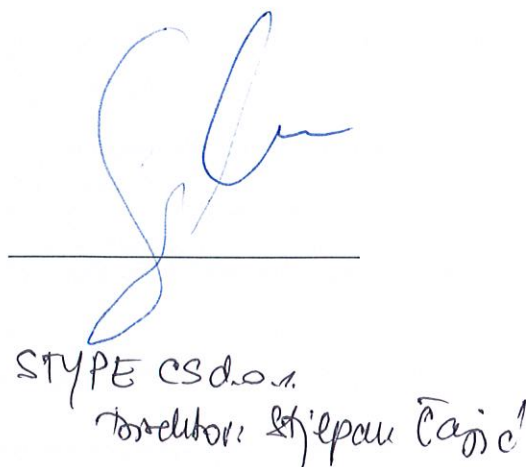 STYPE CS d.o.o.
Direktor: Stjepan Čajić